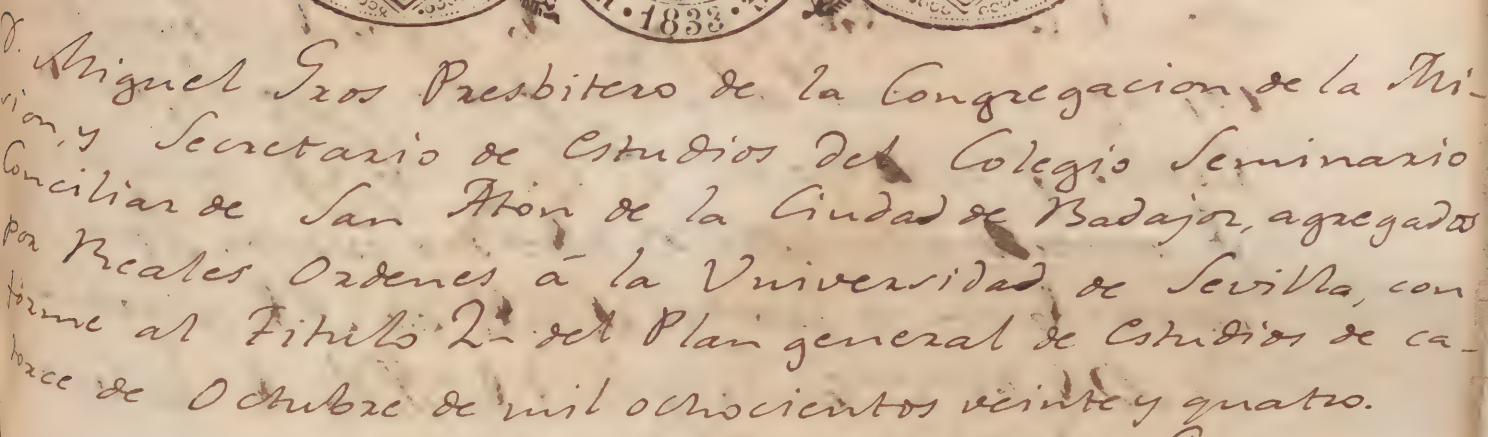 1833
D. Miguel Gros Presbitero de la Congregacion de la Mi-
sion, y Secretario de Estudios del Colegio Seminario
Conciliar de San Aton de la Ciudad de Badajoz, agregados
por Reales Ordenes á la Universidad de Sevilla, con
forme al Titulo 2º del Plan general de Estudios de ca-
torce de Octubre de mil ochocientos veinte y quatro.